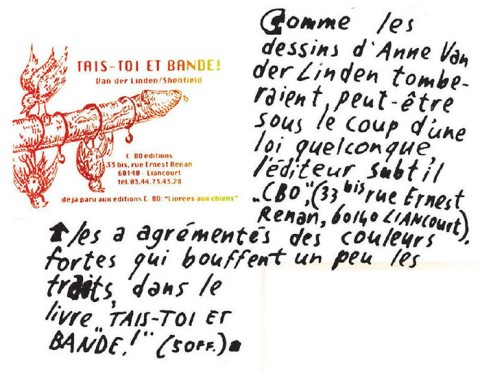 TAIS-TOI ET BANDE!
Van der Linden/Shenfield
C BO éditions
33 bis, rue Ernest Renan
60140 - Liancourt
tel. 03.44.73.43.28
deja paru aux editions C BO: "Livrées aux chiens"
Comme les
dessins d'Anne Van
der Linden tombe-
raient, peut-être
sous le coup d'une
loi quelconque,
l'éditeur subtil
"CBO", (33 bis rue Ernest
Renan, 60140 LIANCOURT).
les a agrémentés des couleurs
fortes qui bouffent un peu les
traits, dans le
livre "TAIS-TOI ET
BANDE!" (50FF.)